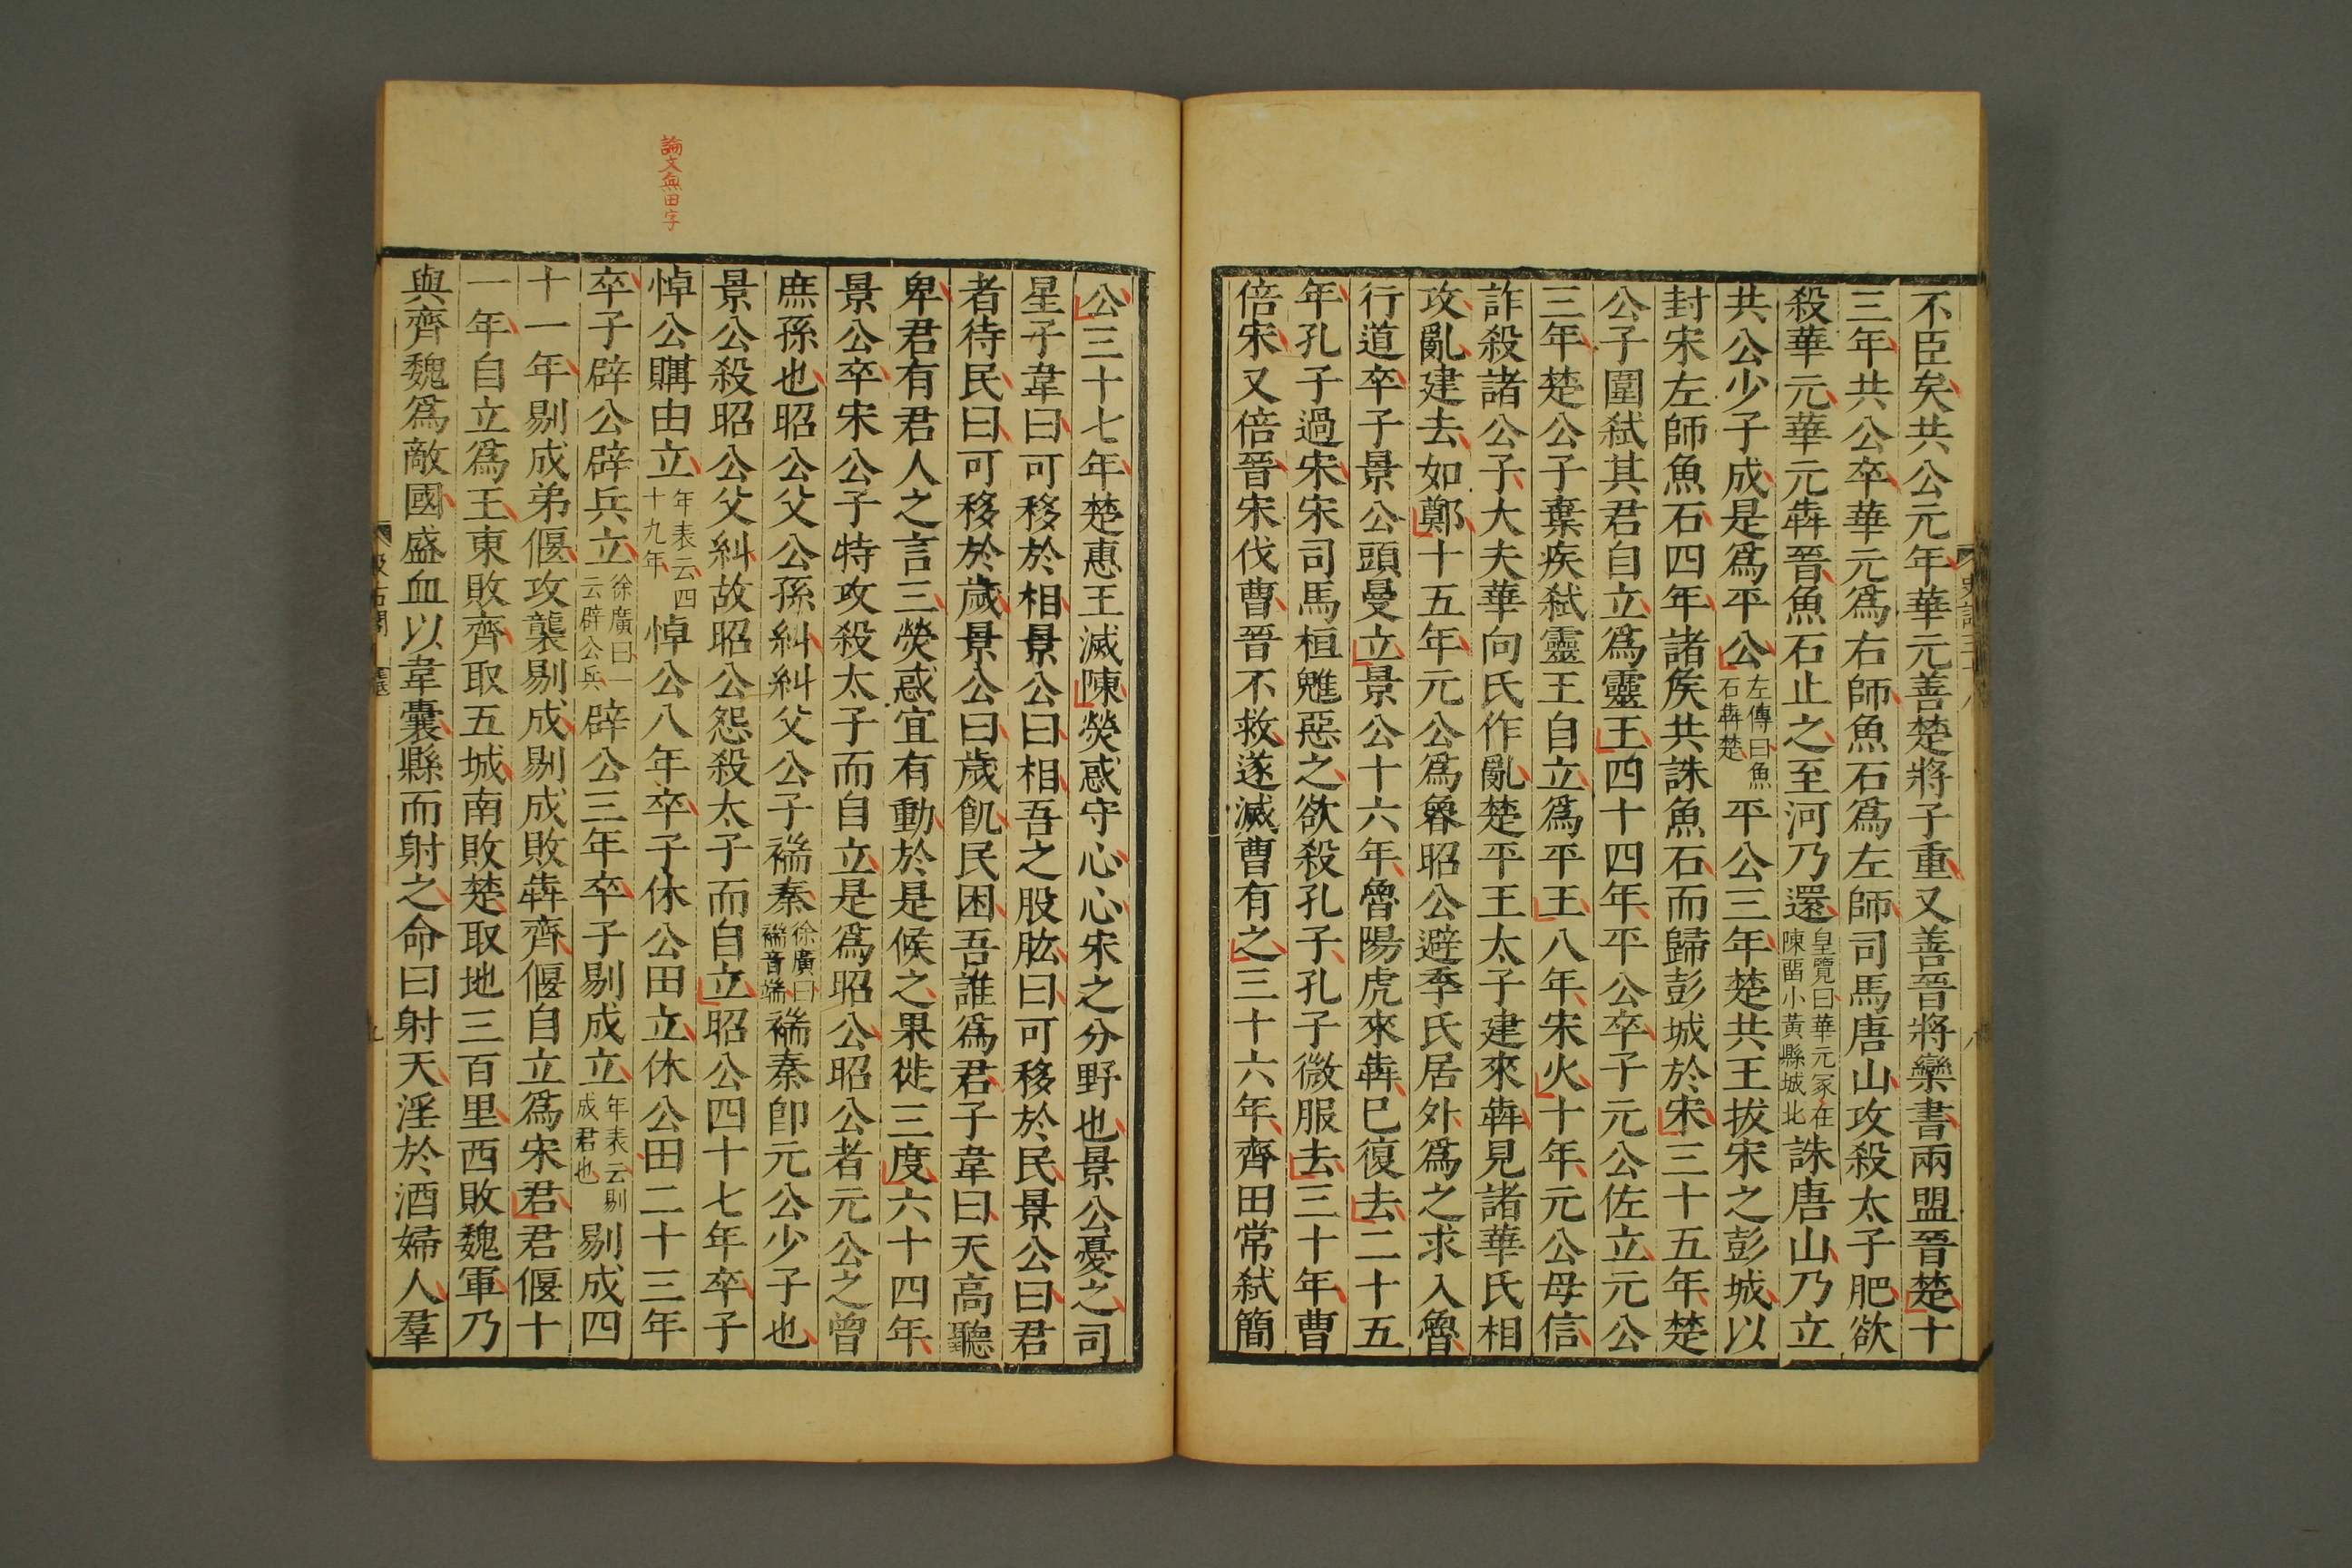 不臣矣共公元年華元善楚將子重又善晉將欒書兩盟晉楚十
三年共公卒華元爲右師魚石爲左師司馬唐山攻殺太子肥欲
殺華元華元犇晉魚石止之至河乃還皇覽曰華元冢在陳畱小黃縣城北誅唐山乃立
共公少子成是爲平公左傳曰魚石犇楚平公三年楚共王拔宋之彭城以
封宋左師魚石四年諸矦共誅魚石而歸彭城於宋三十五年楚
公子圍弑其君自立爲靈王四十四年平公卒子元公佐立元公
三年楚公子棄疾弑靈王自立爲平王八年宋火十年元公毋信
詐殺諸公子大夫華向氏作亂楚平王太子建來犇見諸華氏相
攻亂建去如鄭十五年元公爲魯昭公避季氏居外爲之求入魯
行道卒子景公頭曼立景公十六年魯陽虎來犇已復去二十五
年孔子過宋宋司馬桓魋惡之欲殺孔子孔子微服去三十年曹
倍宋又倍晉宋伐曹晉不救遂滅曹有之三十六年齊田常弑簡
公三十七年楚惠王滅陳熒惑守心心宋之分野也景公憂之司
星子韋曰可移於相景公曰相吾之股肱曰可移於民景公曰君
者待民曰可移於歲景公曰歲飢民困吾誰爲君子韋曰天高聽
卑君有君人之言三熒惑宜有動於是候之果徙三度六十四年
景公卒宋公子特攻殺太子而自立是爲昭公昭公者元公之曾
庶孫也昭公父公孫糾糾父公子褍秦徐廣曰褍音端褍秦卽元公少子也
景公殺昭公父糾故昭公怨殺太子而自立昭公四十七年卒子
悼公購由立年表云四十九年悼公八年卒子休公田立休公田二十三年
卒子辟公辟兵立徐廣曰一云辟公兵辟公三年卒子剔成立年表云剔成君也剔成四
十一年剔成弟偃攻襲剔成剔成敗犇齊偃自立爲宋君君偃十
一年自立爲王東敗齊取五城南敗楚取地三百里西敗魏軍乃
與齊魏爲敵國盛血以韋囊縣而射之命曰射天淫於酒婦人羣
論文無田字